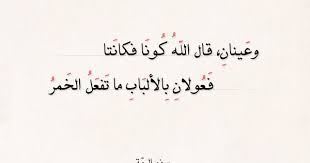 وعَينانِ، قال اللّهُ كُونَا فكانَتا
فَعُولانِ بِالألبَابِ ما تَفعَلُ الخَمرُ